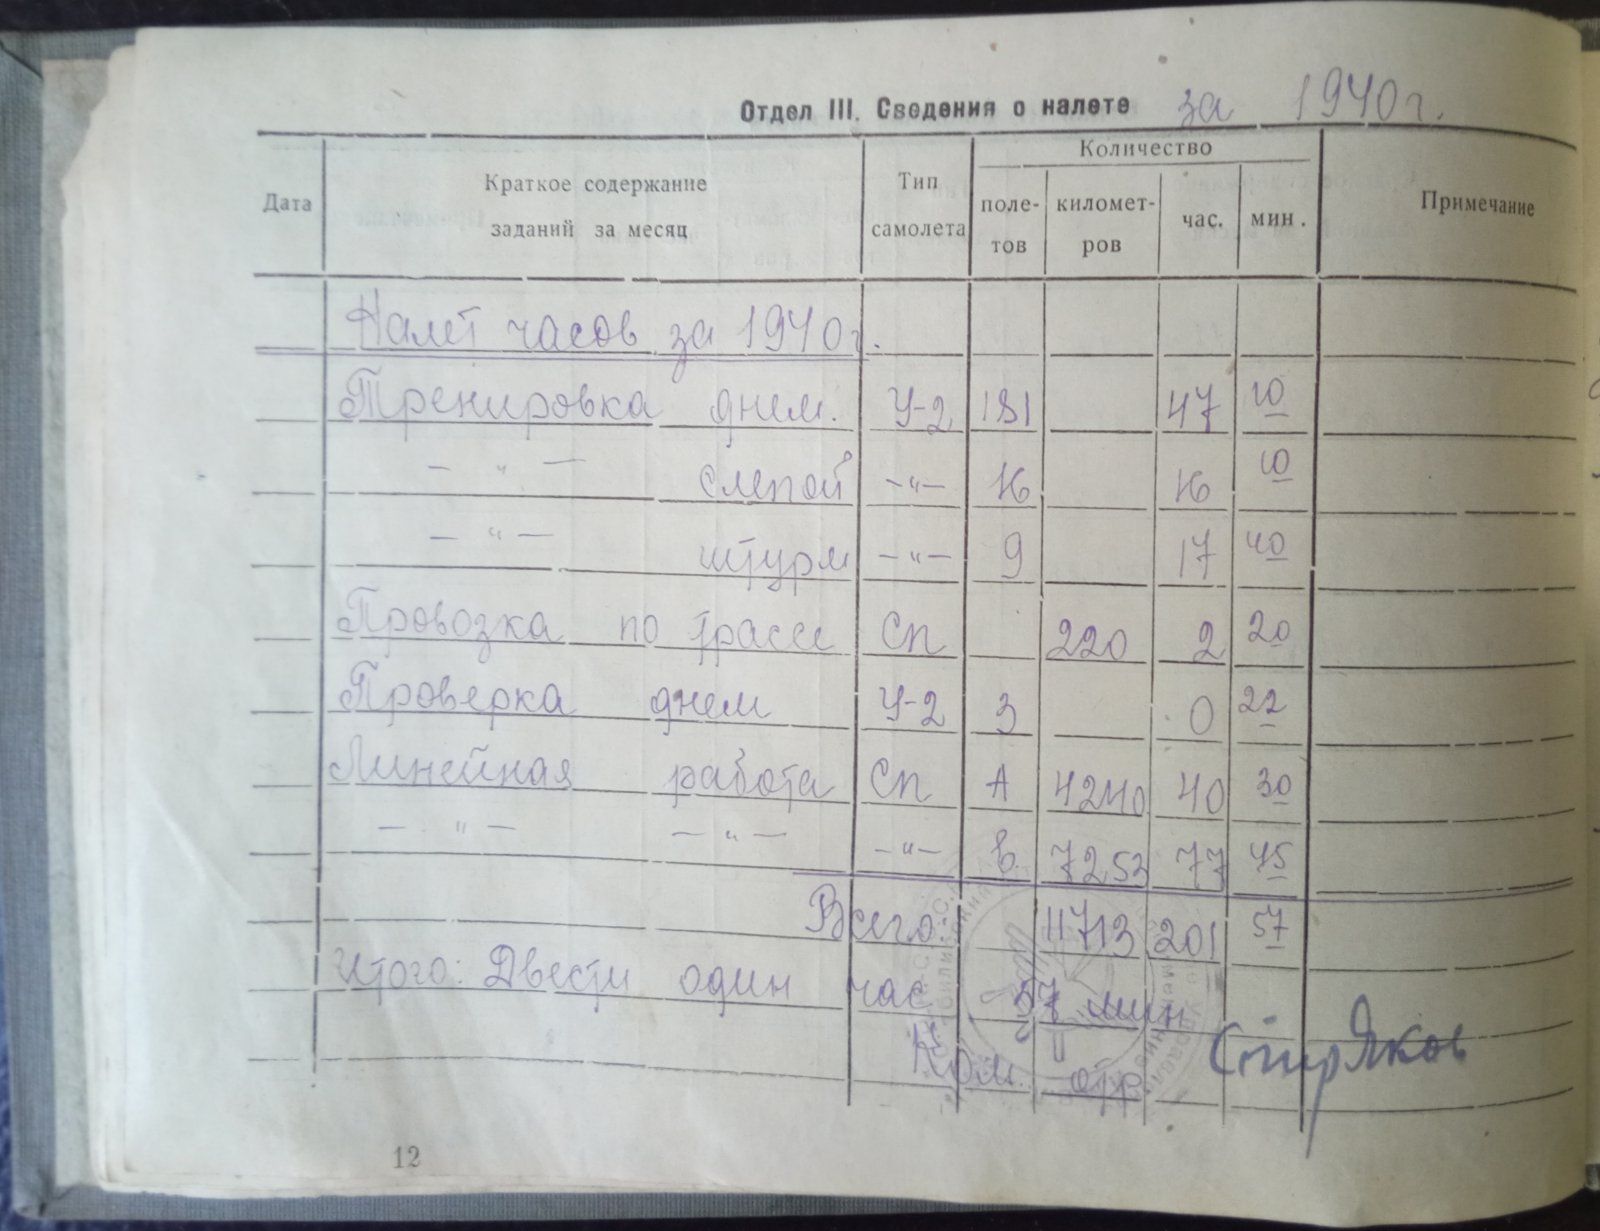 Отдел III. Сведения о налете за 1940 г.
Дата Краткое содержание заданий за месяц Тип самолета Количество Примечание
поле-тов километ-ров час. мин.
Налет часов за 1940 г.
Тренировка днем. У-2 181 47 10
— " — слепой —"— 16 16 10
— " — штурм —"— 9 17 40
Провозка по трассе СП 220 2 20
Проверка днем У-2 3 0 22
Линейная работа СП А 4240 40 30
— " — — " — —"— Б 7253 77 45
Всего: 11713 201 57
Итого: Двести один час 57 мин
Ком. отр
12